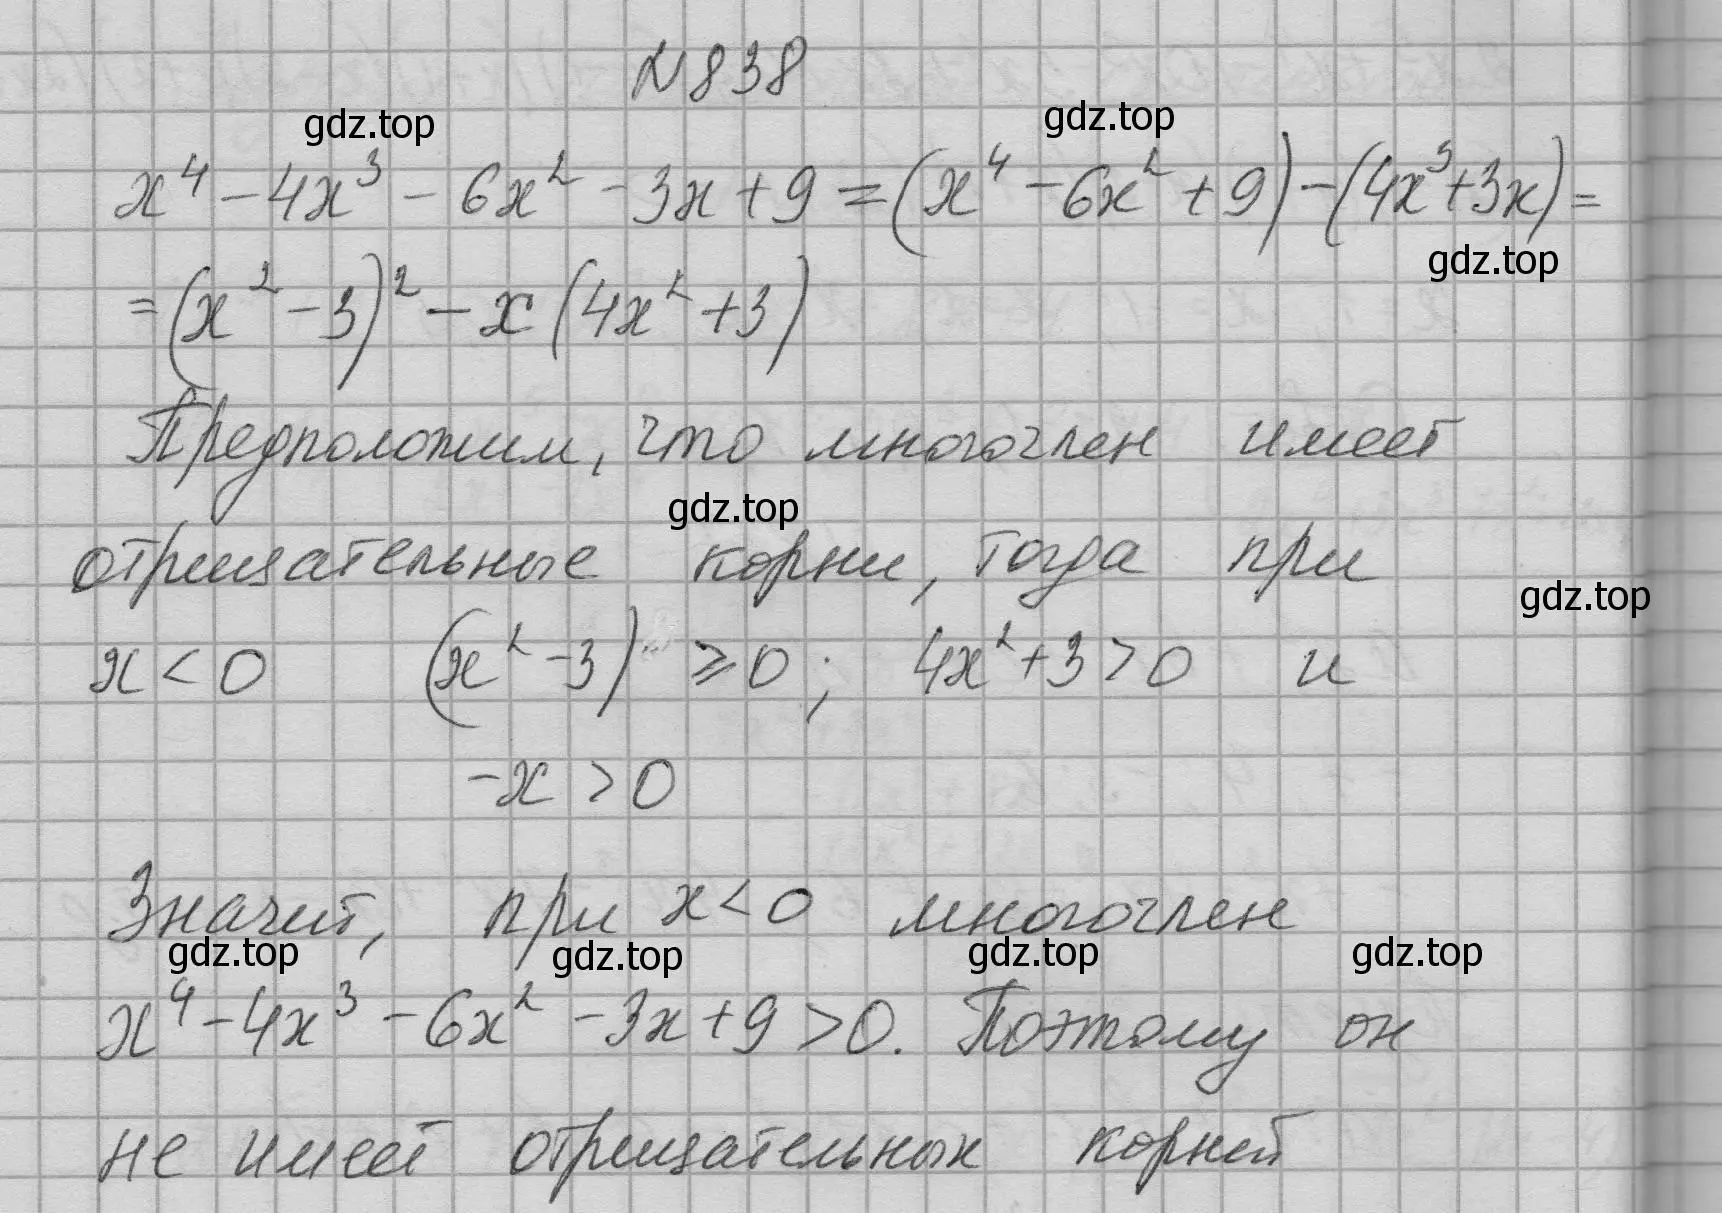 №838
gdz.top gdz.top
x⁴ - 4x³ - 6x² - 3x + 9 = (x⁴ - 6x² + 9) - (4x³ + 3x) =
gdz.top
= (x² - 3)² - x (4x² + 3)
Предположим, что многочлен имеет
gdz.top
отрицательные корни, тогда при
gdz.top
x < 0 (x² - 3) ≥ 0; 4x² + 3 > 0 и
-x > 0
Значит, при x < 0 многочлен
gdz.top gdz.top gdz.top gdz.top
x⁴ - 4x³ - 6x² - 3x + 9 > 0. Поэтому он
не имеет отрицательных корней